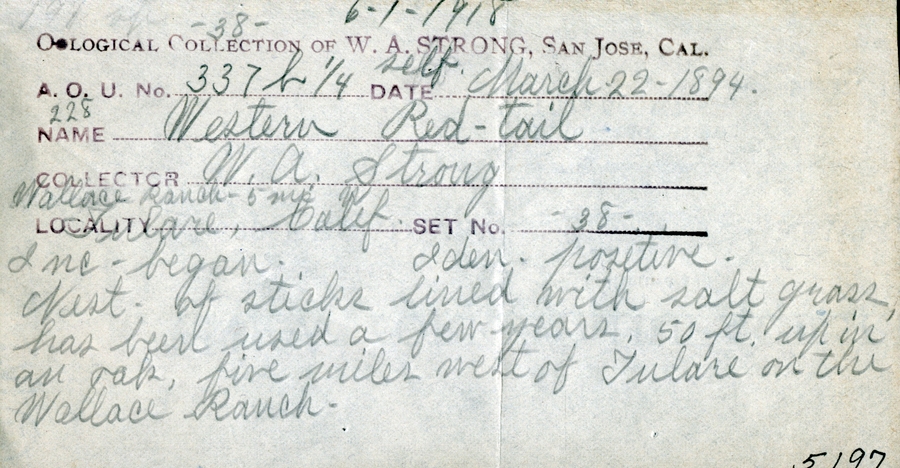 6-1-1918
-38-
OOLOGICAL COLLECTION OF W. A. STRONG, SAN JOSE, CAL.
self.
A. O. U. No. 337 b 1/4 DATE March 22-1894.
228
NAME Western Red-tail
COLLECTOR W. A. Strong
Wallace Ranch - 5 mi.
LOCALITY Tulare, Calif. SET No. -38-
Inc- began. Iden. posetive.
Nest- of sticks lined with salt grass,
has been used a few years, 50 ft. up in
an oak, five miles west of Tulare on the
Wallace Ranch-
5197